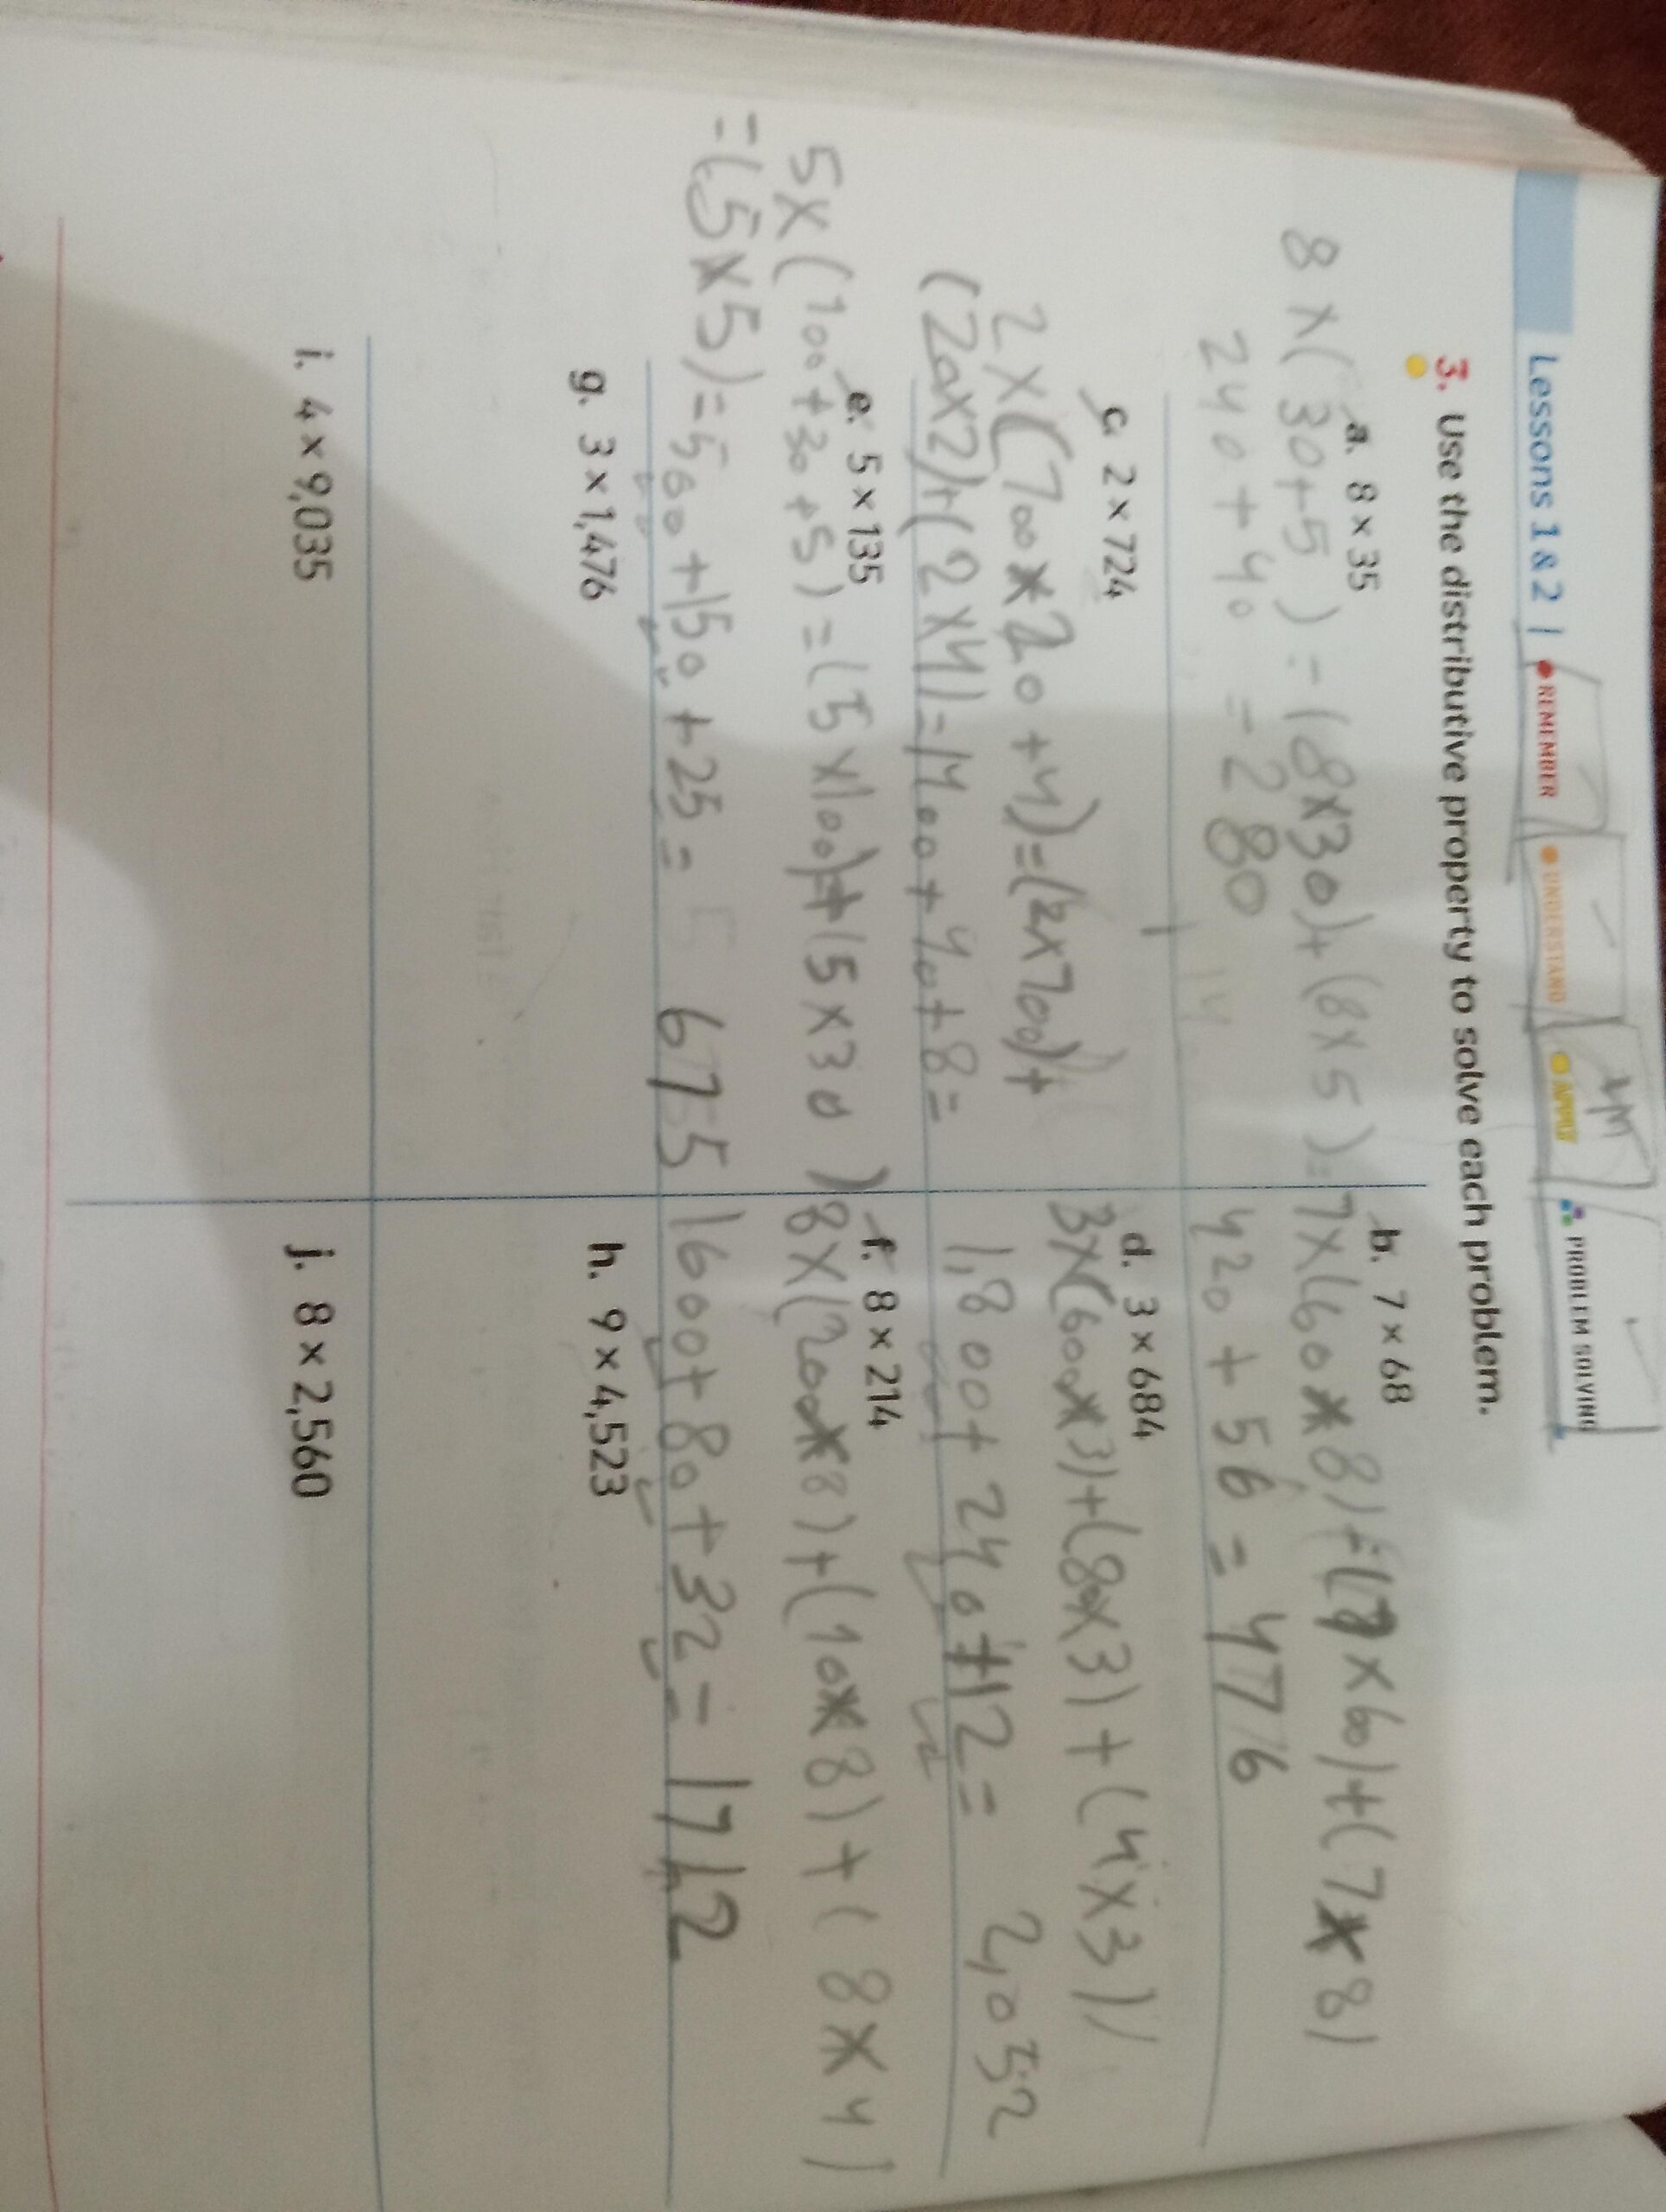 Lessons 1 & 2 | REMEMBER UNDERSTAND APPLY PROBLEM SOLVING
3. Use the distributive property to solve each problem.
a. 8 × 35
8 × (30+5) = (8×30)+(8×5)=
240+40 = 280
b. 7 × 68
7×(60×8)+(7×60)+(7×8)
420+56=476
c. 2 × 724
2×(700×20+4)=(2×700)+
(20×2)+(2×4)=1400+40+8=
d. 3 × 684
3×(600×3)+(80×3)+(4×3)
1,800+240+12= 2,052
e. 5 × 135
5×(100+30+5)=(5×100)+(5×30)
=(5×5)=500+150+25= 675
f. 8 × 214
8×(200×8)+(10×8)+(8×4)
1600+80+32=1712
g. 3 × 1,476
h. 9 × 4,523
i. 4 × 9,035
j. 8 × 2,560